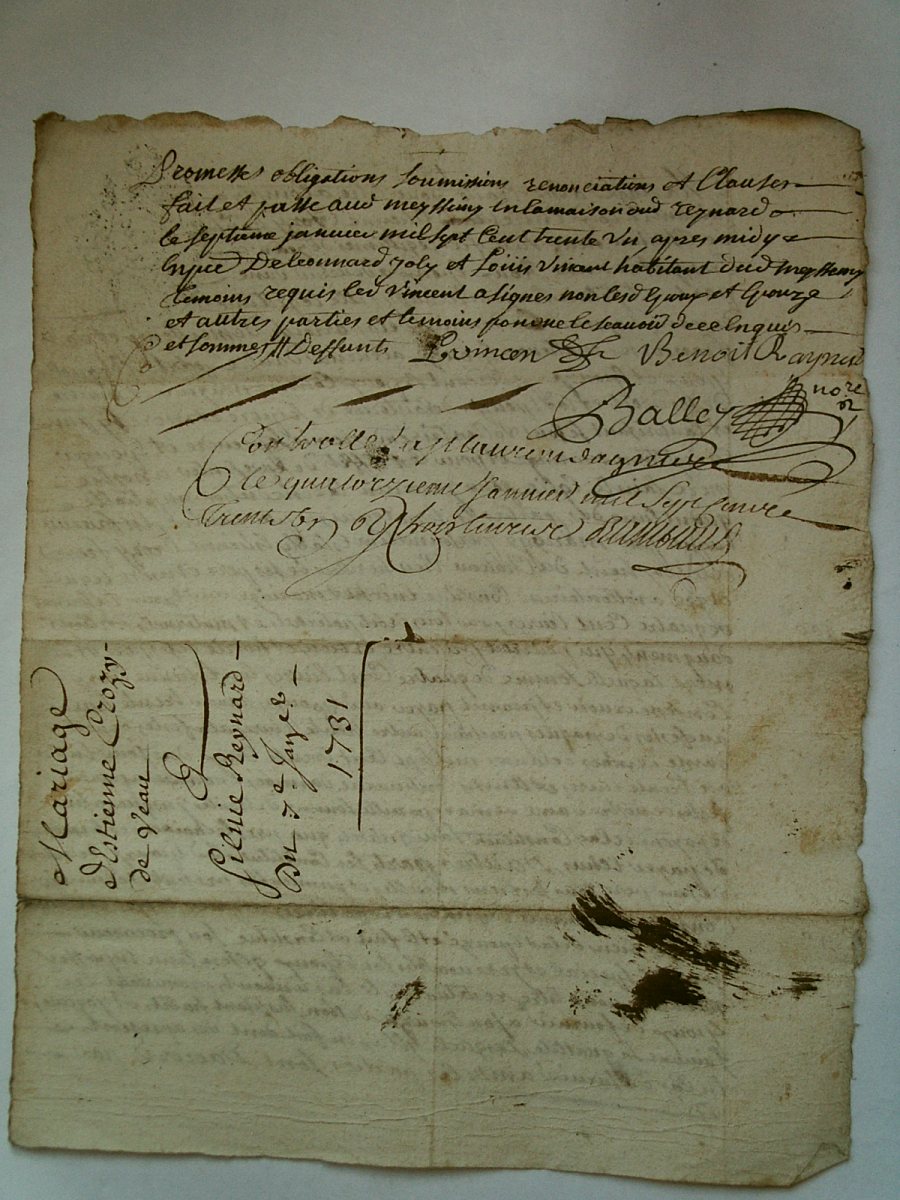 Promesses obligations soumissions renonciations et Clauses
fait et passé aud meyssimy en la maison dud reynard
le septieme janvier mil sept Cent trente un apres midy
en pnce De leonnard joly et Louis vincent habitant dud meyssemy
temoins requis led vincent a signes non lesd epoux et epouze
et autres parties et temoins pour ne le scavoir de ce enquis
et sommes Dessunts Benoit Raynard
Balley nore
Controllé a St laurens dagnire
le quatorzieme janvier mil sept cent
trente
Mariage
dEstienne Crozy
de Veau
Et
Silvie Reynard
Du 7e Janver
1731